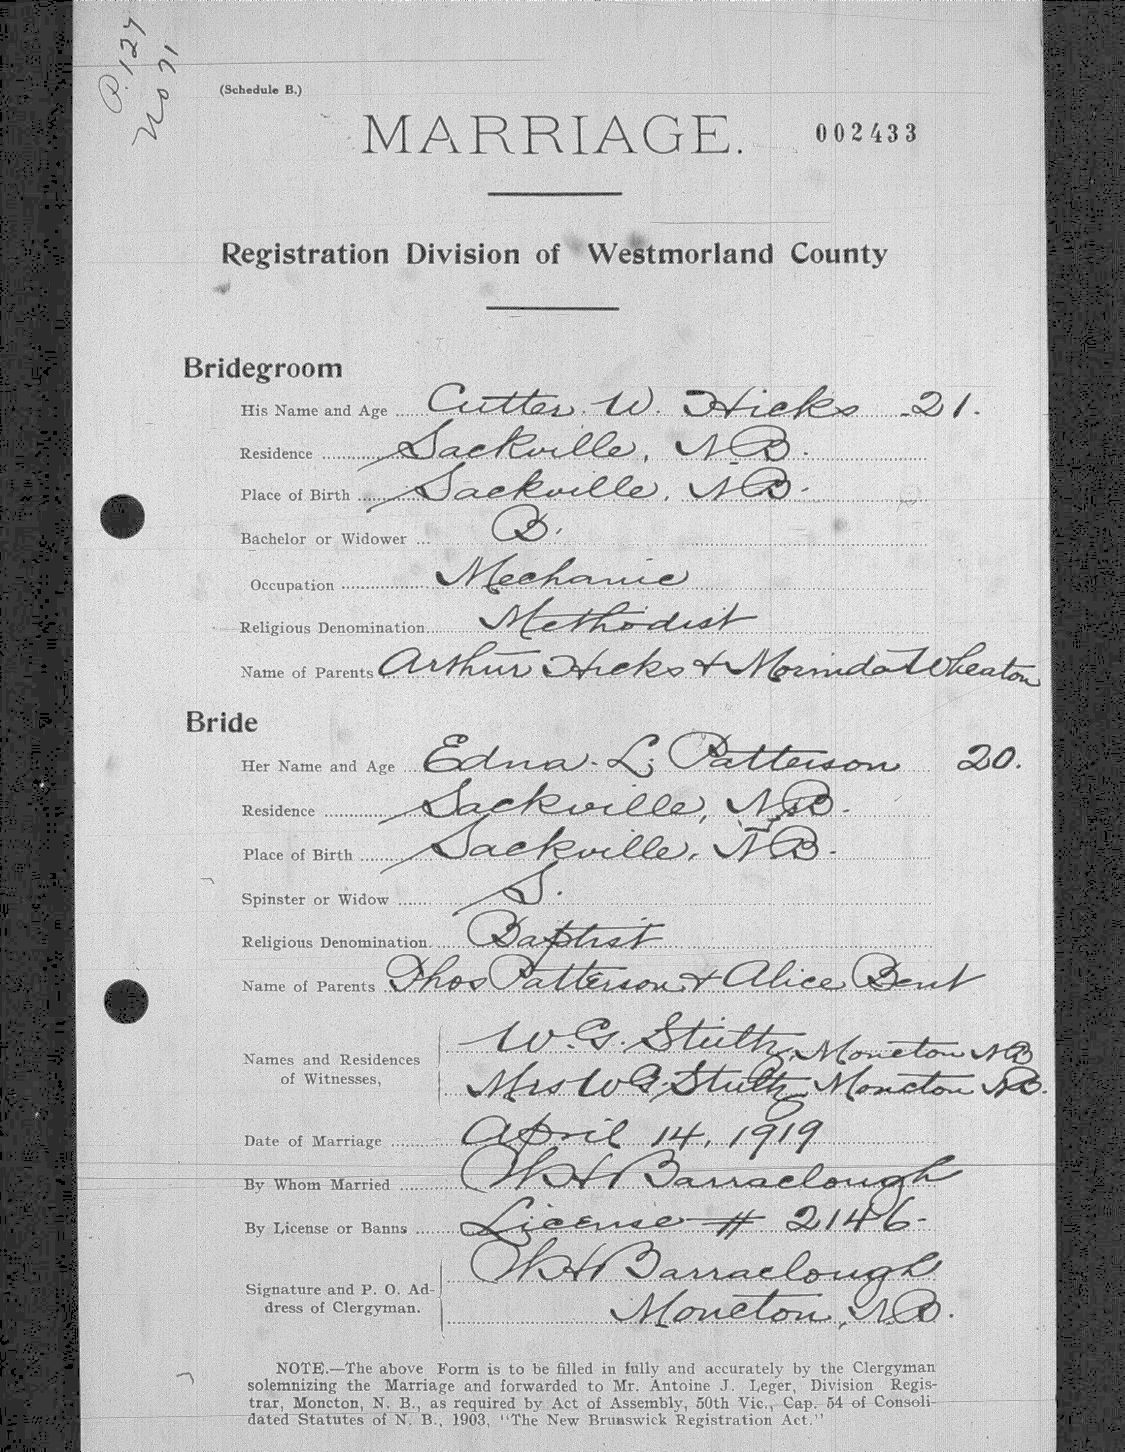 P. 127
No 71
(Schedule B.)
MARRIAGE. 002433
Registration Division of Westmorland County
Bridegroom
His Name and Age Cutter W. Hicks 21.
Residence Sackville, N.B.
Place of Birth Sackville, N.B.
Bachelor or Widower B.
Occupation Mechanic
Religious Denomination Methodist
Name of Parents Arthur Hicks + Wheaton
Bride
Her Name and Age Edna L. Patterson 20.
Residence Sackville, N.B.
Place of Birth Sackville, N.B.
Spinster or Widow S.
Religious Denomination Baptist
Name of Parents Thos Patterson + Alice Bent
Names and Residences
of Witnesses,
W. G. Moncton NB
Mrs W G Moncton N.B.
Date of Marriage April 14, 1919
By Whom Married W H Barraclough
By License or Banns License # 2146-
Signature and P. O. Ad-
dress of Clergyman.
W H Barraclough
Moncton, N.B.
NOTE.—The above Form is to be filled in fully and accurately by the Clergyman
solemnizing the Marriage and forwarded to Mr. Antoine J. Leger, Division Regis-
trar, Moncton, N. B., as required by Act of Assembly, 50th Vic., Cap. 54 of Consoli-
dated Statutes of N. B., 1903, "The New Brunswick Registration Act."